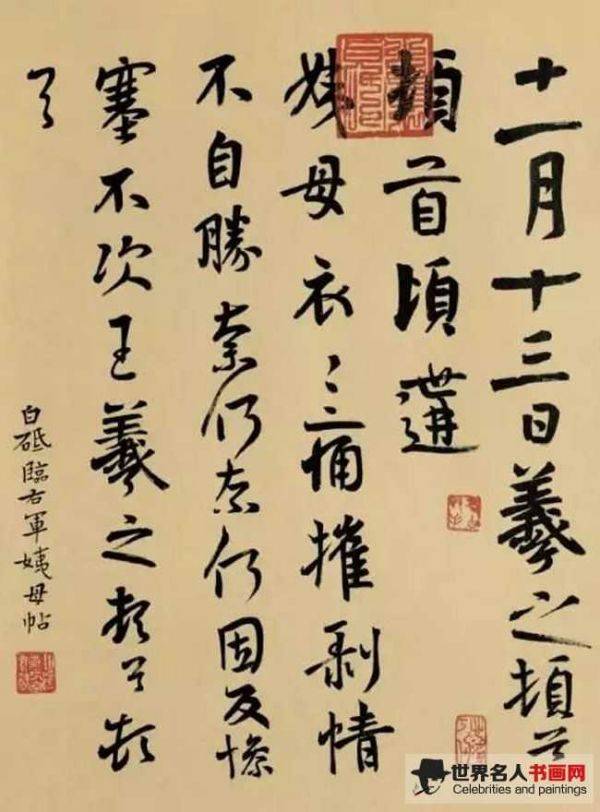 十一月十三日羲之頓首
頓首頃遘
姨母哀〻痛摧剥情
不自勝奈何奈何因反慘
塞不次王羲之頓首頓
首
白砥臨右軍姨母帖
世界名人书画网
Celebrities and paintings